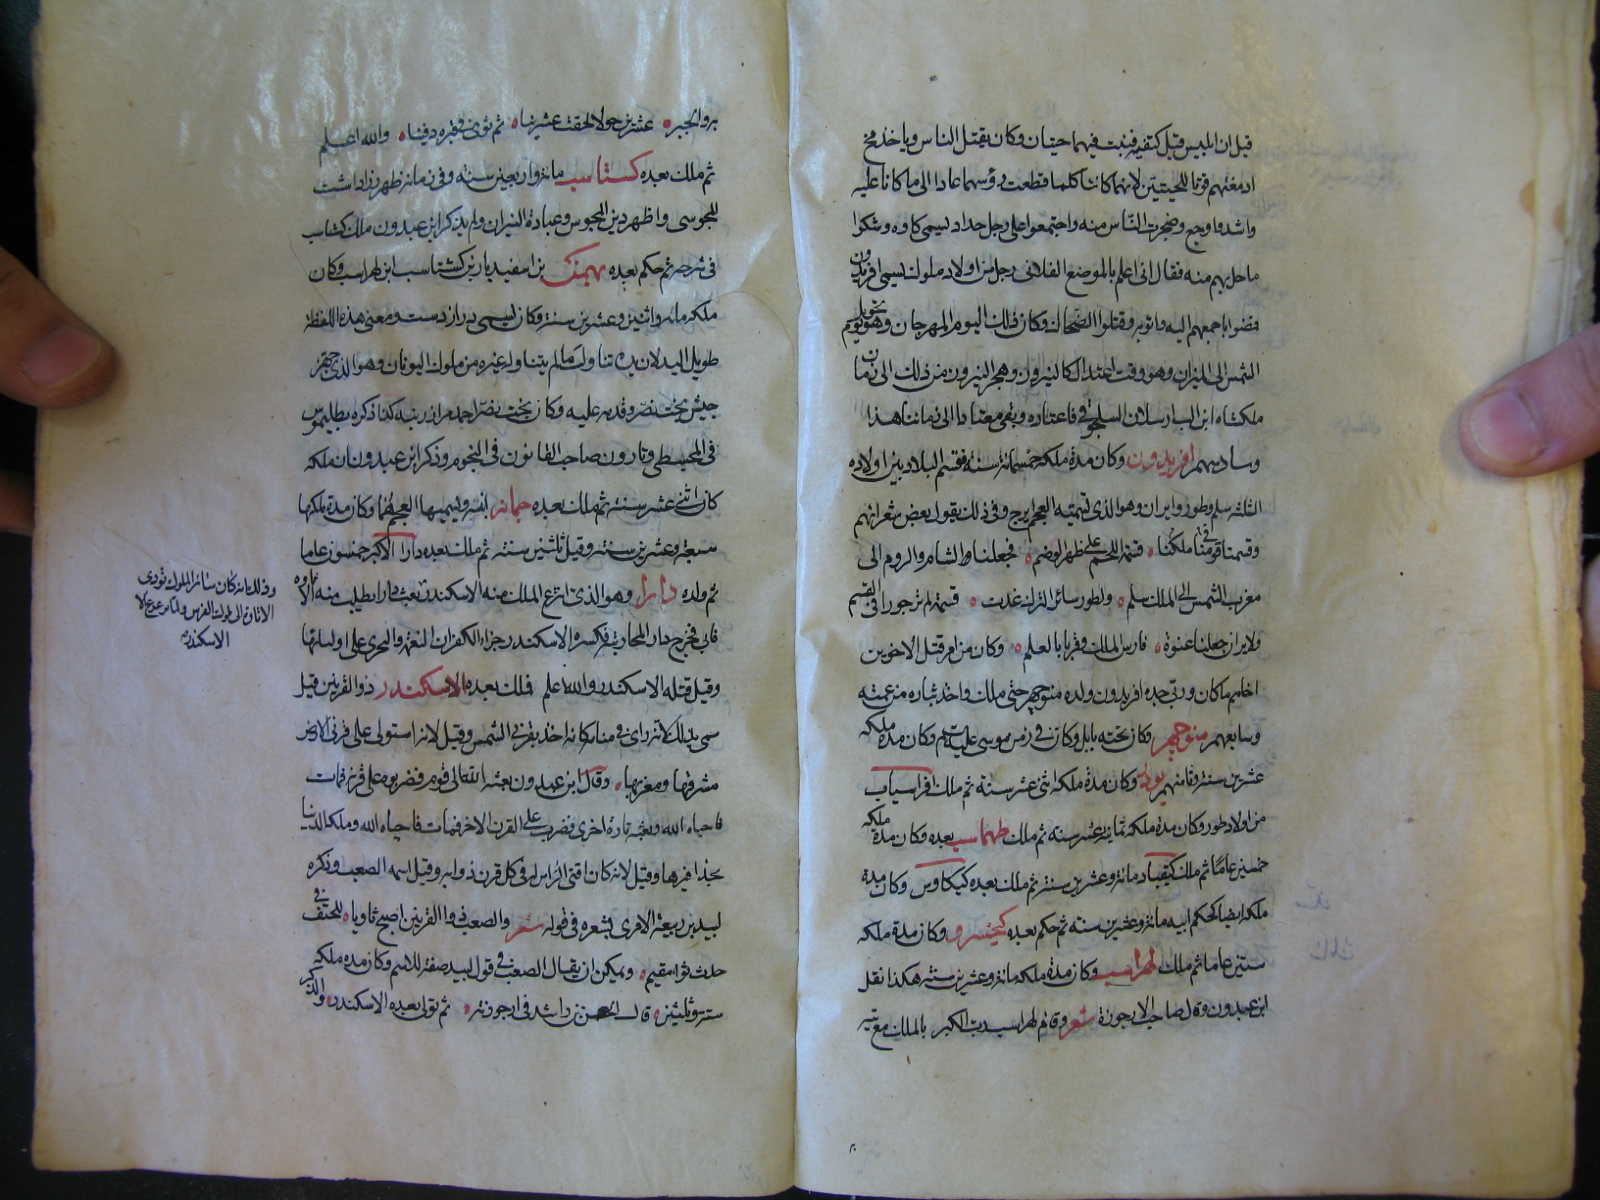 قيل ان ابليس قبل كتفيه فنبت فيهما حيتان وكان يقتل الناس وياخذ مخ
ادمغتهم قوتا للحيتين لانهما كانتا كلما قطعت رؤسهما عادا الى ما كانا عليه
واشد واوجع وضجرت الناس منه واجتمعوا على رجل حداد يسمى كاوه وشكوا
ما حل بهم منه فقال انى اعلم بالموضع الفلانى رجل من اولاد ملوك يسمى افريدون
فمضوا باجمعهم اليه واتوا به وقتلوا الضحاك وكان ذلك اليوم المهرجان وهو يوم تحول
الشمس الى الميزان وهو وقت اعتدال كالنيروز وهجر النيروز من ذلك الى زمان
ملكشاه ابن الب ارسلان السلجوقى فاعتاده وبقى معتادا الى زماننا هذا
وسادسهم افريدون وكان مدة ملكه خمسمائة سنة فقسم البلاد بين اولاده
الثلثه سلم وطور وايران وهو الذى تسميه العجم ايرج وفى ذلك يقول بعض شعرائهم
وقسمنا ملكنا فى قومنا قسمة اللحم على ظهر الوضم فجعلنا الشام والروم الى
مغرب الشمس الى الملك سلم ولطور سائر الترك غدت قسمة لم تر جورا فى القسم
ولايران جعلنا عنوة فارس الملك وقربا بالعلم وكان من امر قتل الاخوين
اخاهم ما كان وربى جده افريدون ولده منوجهر حتى ملك واخذ بثاره من عميه
وسابعهم منوجهر وكان تخته بابل وكان فى زمن موسى عليه السلم وكان مدة ملكه
عشرين سنة وثامنهم وكان مدة ملكه اثنى عشر سنة ثم ملك افراسياب
من اولاد طور وكان مدة ملكه ثمانية عشر سنه ثم ملك طهماسب بعده وكان مدة ملكه
خمسين عاما ثم ملك كيقباد مائة وعشرين سنة ثم ملك بعده كيكاوس وكان مدة
ملكه ايضا كحكم ابيه مائة وعشرين سنة ثم حكم بعده كيخسرو وكان مدة ملكه
ستين عاما ثم ملك لهراسب وكان مدة ملكه مائة وعشرين سنه هكذا نقل
ابن عبدون وقال صاحب الارجوزة شعر وقام لهراسب رب الكبر بالملك مع
عشرين حولا لحقت عشرينا ثم ثوى فى قبره دفينا والله اعلم
ثم ملك بعده كستاسب مائة واربعين سنه وفى زمانه ظهر زاداشت
المجوسى واظهر دين المجوس وعبادة النيران ولم يذكر ابن عبدون ملك كشتاسب
فى شرحه ثم حكم بعده بهمن بن اسفنديار بن كشتاسب ابن لهراسب وكان
ملكه مائه واثنين وعشرين سنة وكان يسمى دراز دست ومعنى هذه اللفظة
طويل اليد لان يده تناولت ما لم يتناوله غيره من ملوك اليونان وهو الذى جهز
جيش بخت نصر وقدمه عليه وكان بخت نصر احد مرازبنه كذا ذكره بطليموس
فى المجسطى وثاون صاحب القانون فى النجوم وذكر ابن عبدون ان ملكه
كان اثنى عشر سنة ثم ملك بعده جمانه ابنته ويسميها العجم هما وكان مدة ملكها
سبعة وعشرين سنة وقيل ثلثين سنة ثم ملك بعده دارا الاكبر خمسون عاما
ثم ولده دارا وهو الذى انتزع الملك منه الاسكندر بعث دارا يطلب منه الاتاوه
فابى فخرج دارا لمحاربته فكسره الاسكندر جزاء الكفران النعمة والجرى على اوليائها
وقيل قتله الاسكندر والله اعلم فملك بعده الاسكندر ذو القرنين قيل
سمى بذلك لانه راى فى منامه كانه اخذ بقرنى الشمس وقيل لانه استولى على قرنى الارض
مشرقها ومغربها وقال ابن عبدون بعثه الله تعالى لقومه فضربوه على قرنه فمات
فاحياه الله وبعثه تارة اخرى فضرب على القرن الاخر فمات فاحياه الله وملكه الدنيا
بحذافيرها وقيل لانه كان اقتى الراس له فى كل قرن ذوابه وقيل اسمه الصعب وذكره
لبيد بن ربيعة العامرى بشعره فى قوله شعر والصعب ذوا القرنين اصبح ثاويا بالحنو فى
جدث ثم مقيم ويمكن ان يقال الصعب فى قول لبيد صفة للاسم وكان مده ملكه
ستة وثلثين قال الحسن بن راشد فى ارجوزته ثم تولى بعده الاسكندر والذكر
وفى الدمانه كان سائر الملوك تودى
الاتاوة الى ملوك الفرس ولما ترعرع الا
الاسكندر